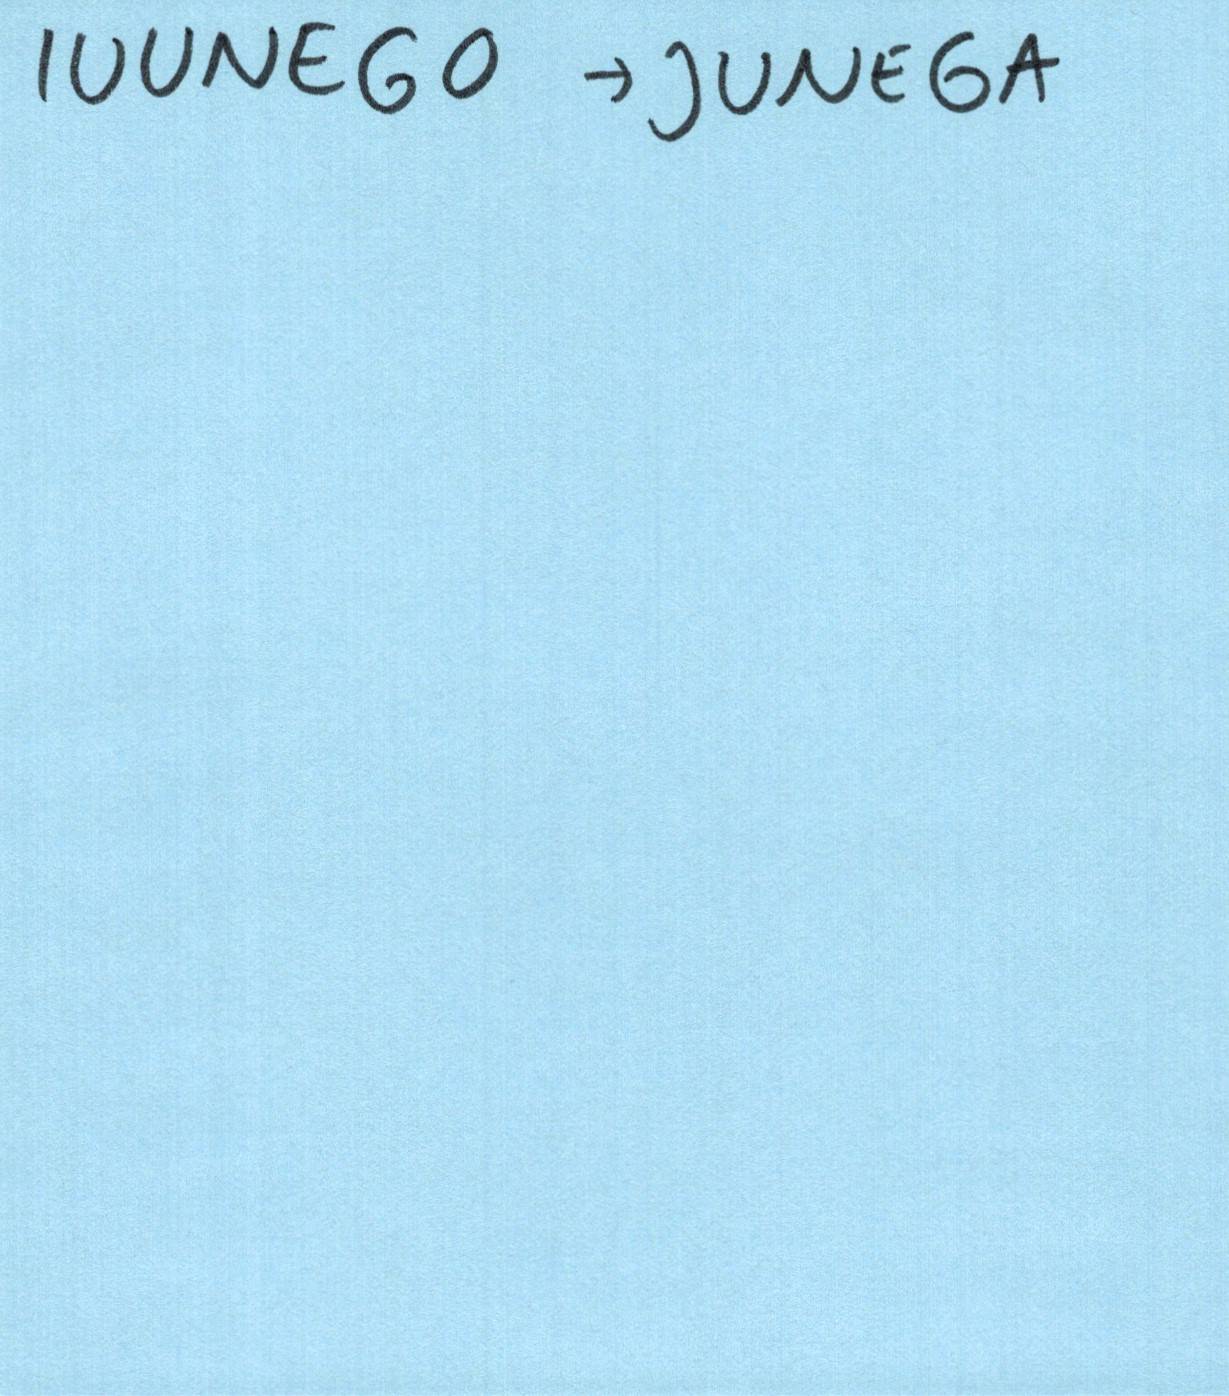 IUUNEGO → JUNEGA